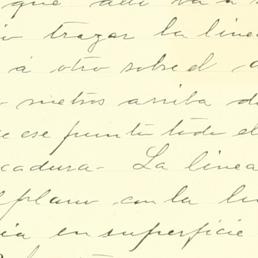 que allí va a s
trazar la linea
á otro sobre el
metros arriba de
ese punto todo el
cadura - La linea
plano con la li
en superficie